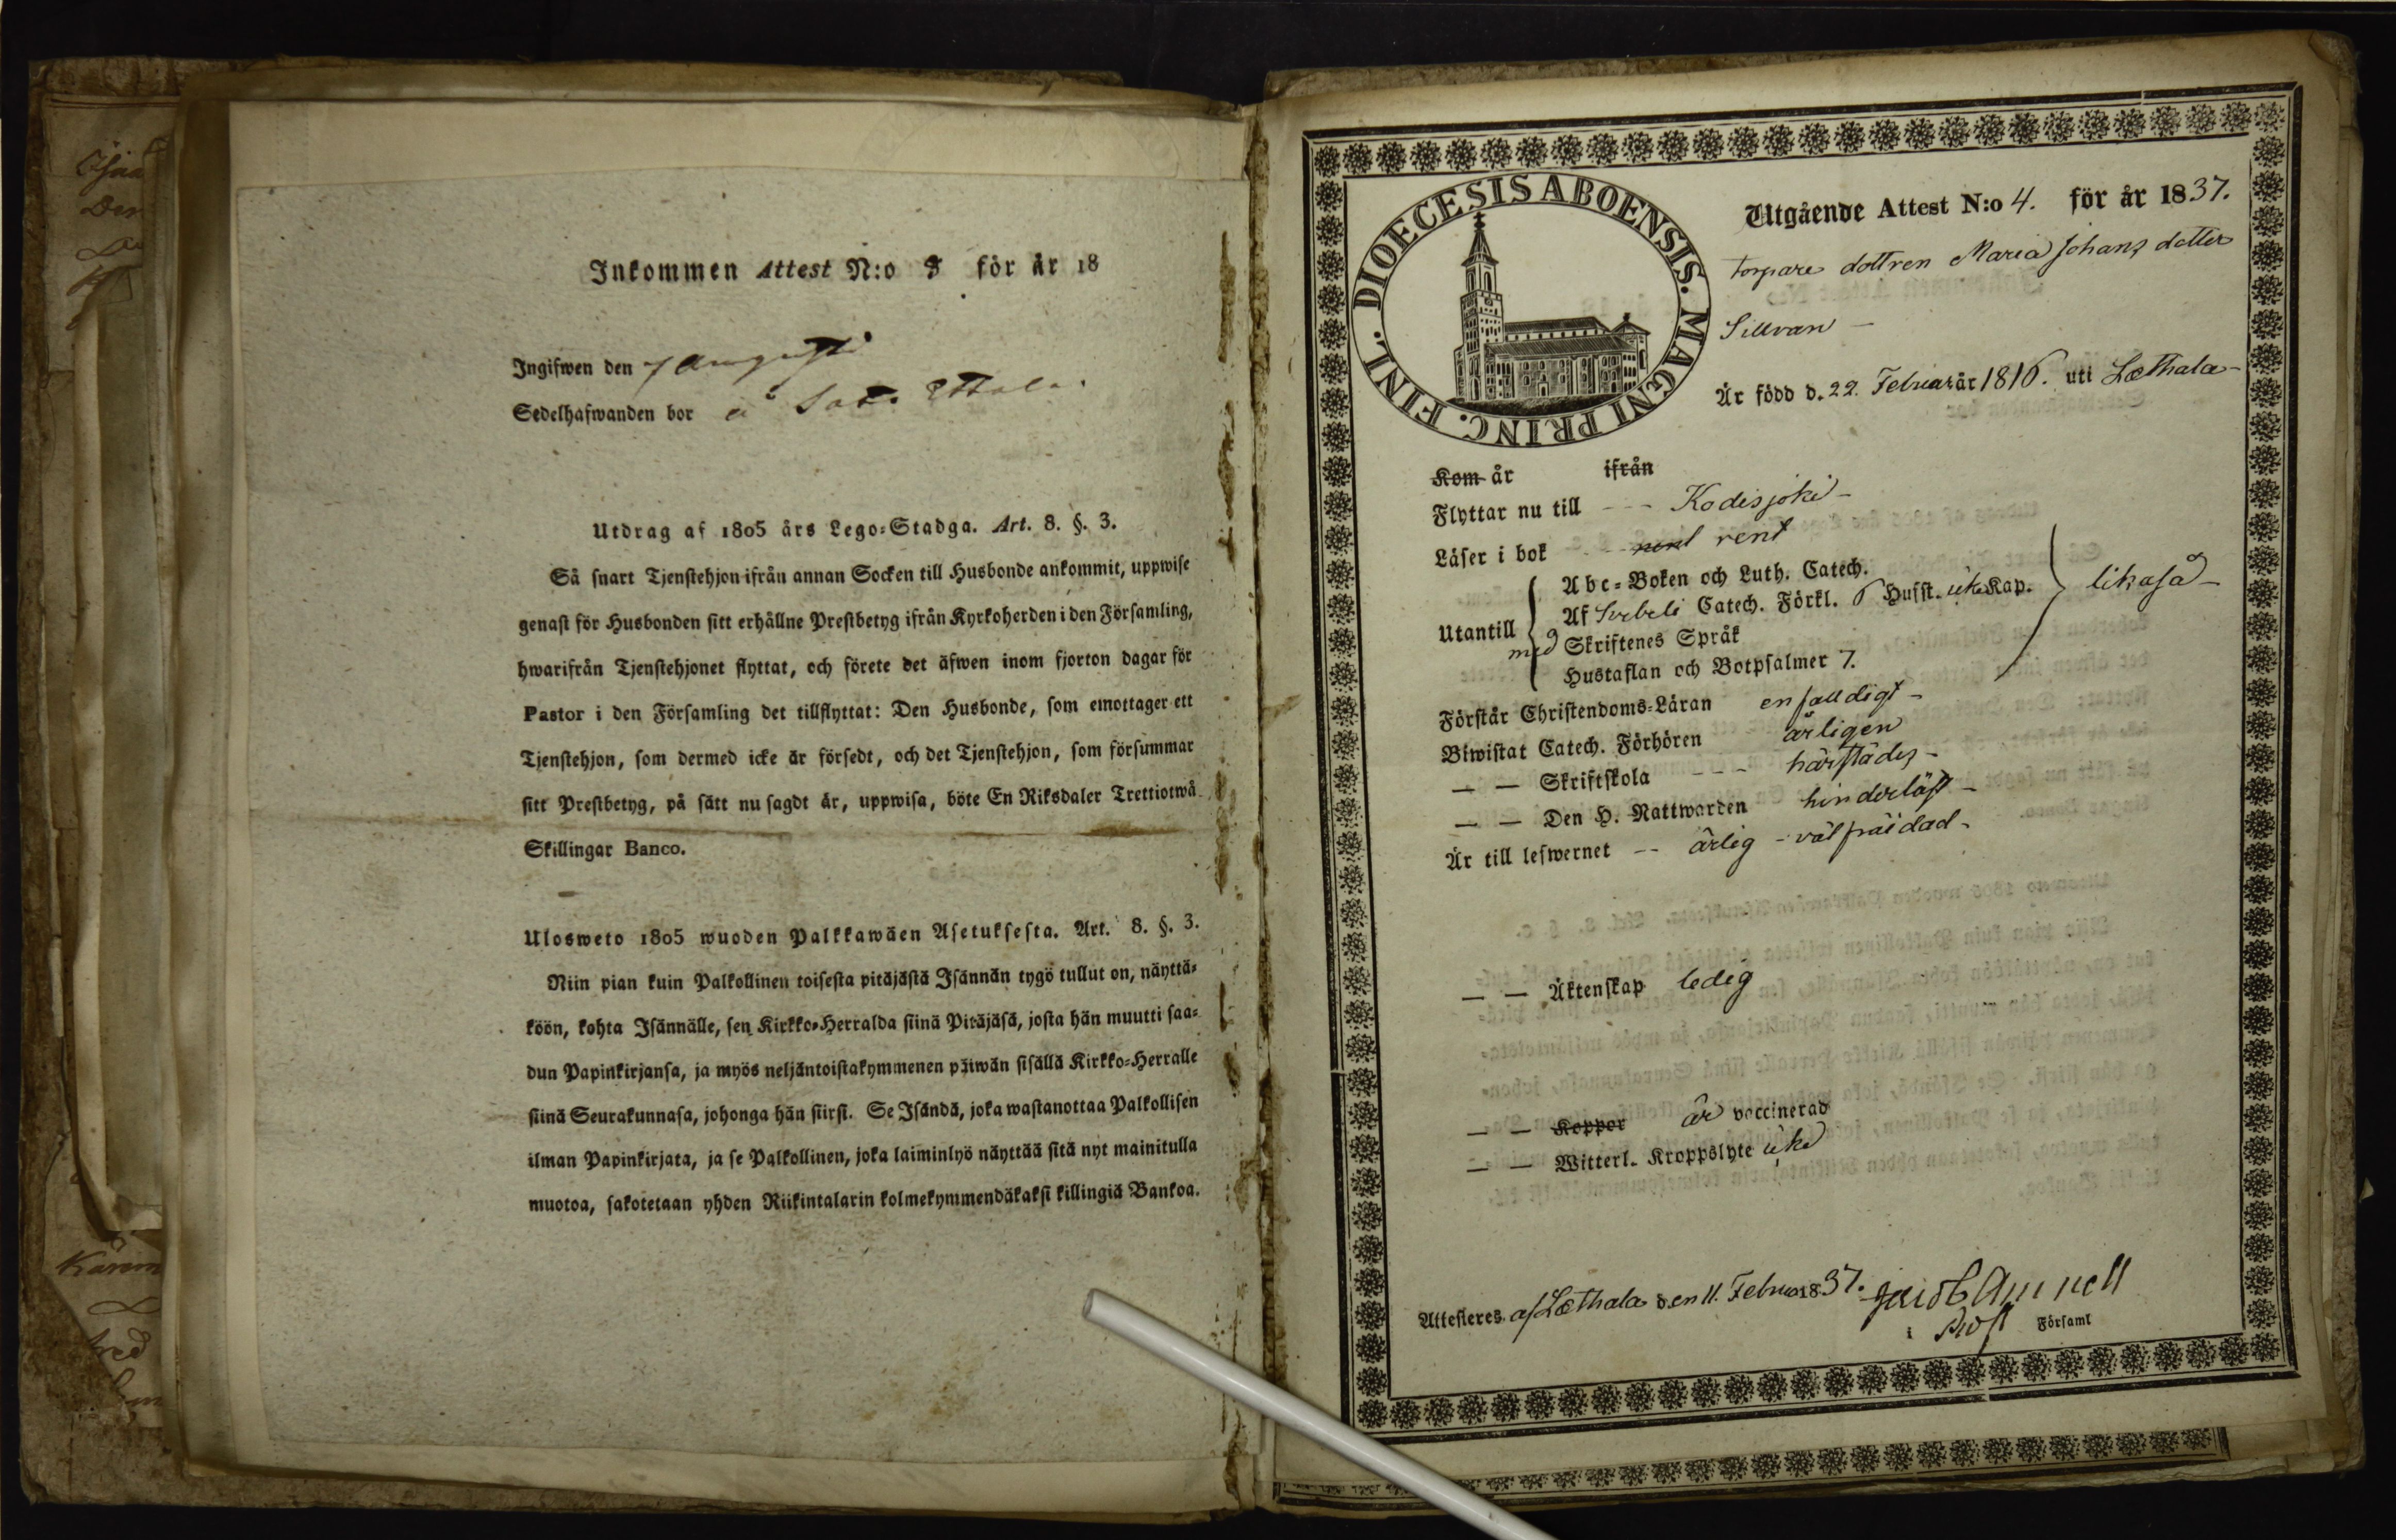 Inkommen Attest N:o 8 för år 18
Ingifwen den 7 Augusti
Sedelhafwanden bor å
Utdrag af 1805 års Lego-Stadga. Art. 8. §. 3.
Så snart Tjenstehjon ifrån annan Socken till Husbonde ankommit, uppwise
genast för Husbonden sitt erhållne Prestbetyg ifrån Kyrkoherden i den Församling,
hwarifrån Tjenstehjonet flyttat, och förete det äfwen inom fjorton dagar för
Pastor i den Församling det tillflyttat: Den Husbonde, som emottager ett
Tjenstehjon, som dermed icke är försedt, och det Tjenstehjon, som försummar
sitt Prestbetyg, på sätt nu sagdt är, uppwisa, böte En Riksdaler Trettiotwå
Skillingar Banco.
Ulosweto 1805 wuoden Palkkawäen Asetuksesta. Art. 8. §. 3.
Niin pian kuin Palkollinen toisesta pitäjästä Isännän tygö tullut on, näyttä-
köön, kohta Isännälle, sen Kirkko-Herralda siinä Pitäjäsä, josta hän muutti saa-
dun Papinkirjansa, ja myös neljäntoistakymmenen päiwän sisällä Kirkko-Herralle
siinä Seurakunnasa, johonga hän siirsi. Se Isändä, joka wastanottaa Palkollisen
ilman Papinkirjata, ja se Palkollinen, joka laiminlyö näyttää sitä nyt mainitulla
muotoa, sakotetaan yhden Riikintalarin kolmekymmendäkaksi killingiä Bankoa.
DIOECESIS ABOENSIS. MAGNI PRINC. FINL.
Utgående Attest N:o 4. för år 1837.
torpare dottren Maria Johans dotter
Sillvan -
Är född d. 22. Februar år 1816. uti Læthala -
Kom år ifrån
Flyttar nu till - - - Kodisjoki -
Läser i bok - - rent rent
Utantill
Abc-Boken och Luth. Catech.
Af Svebeli Catech. Förkl. 6 Hufst. icke Kap.
med Skriftenes Språk
Hustaflan och Botpsalmer 7.
likaså -
Förstår Christendoms-Läran enfalldigt -
Biwistat Catech. Förhören årligen
— — Skriftskola - - - härstädes -
— — Den H. Nattwarden hinderlöst -
Är till lefwernet -- ärlig - väl fräidad -
— — Äktenskap ledig
— — Koppor är vaccinerad
— — Witterl. Kroppslyte icke
Attesteres af Læthala den 11. Februa 1837. Jacob Amnell
i Prost Församl